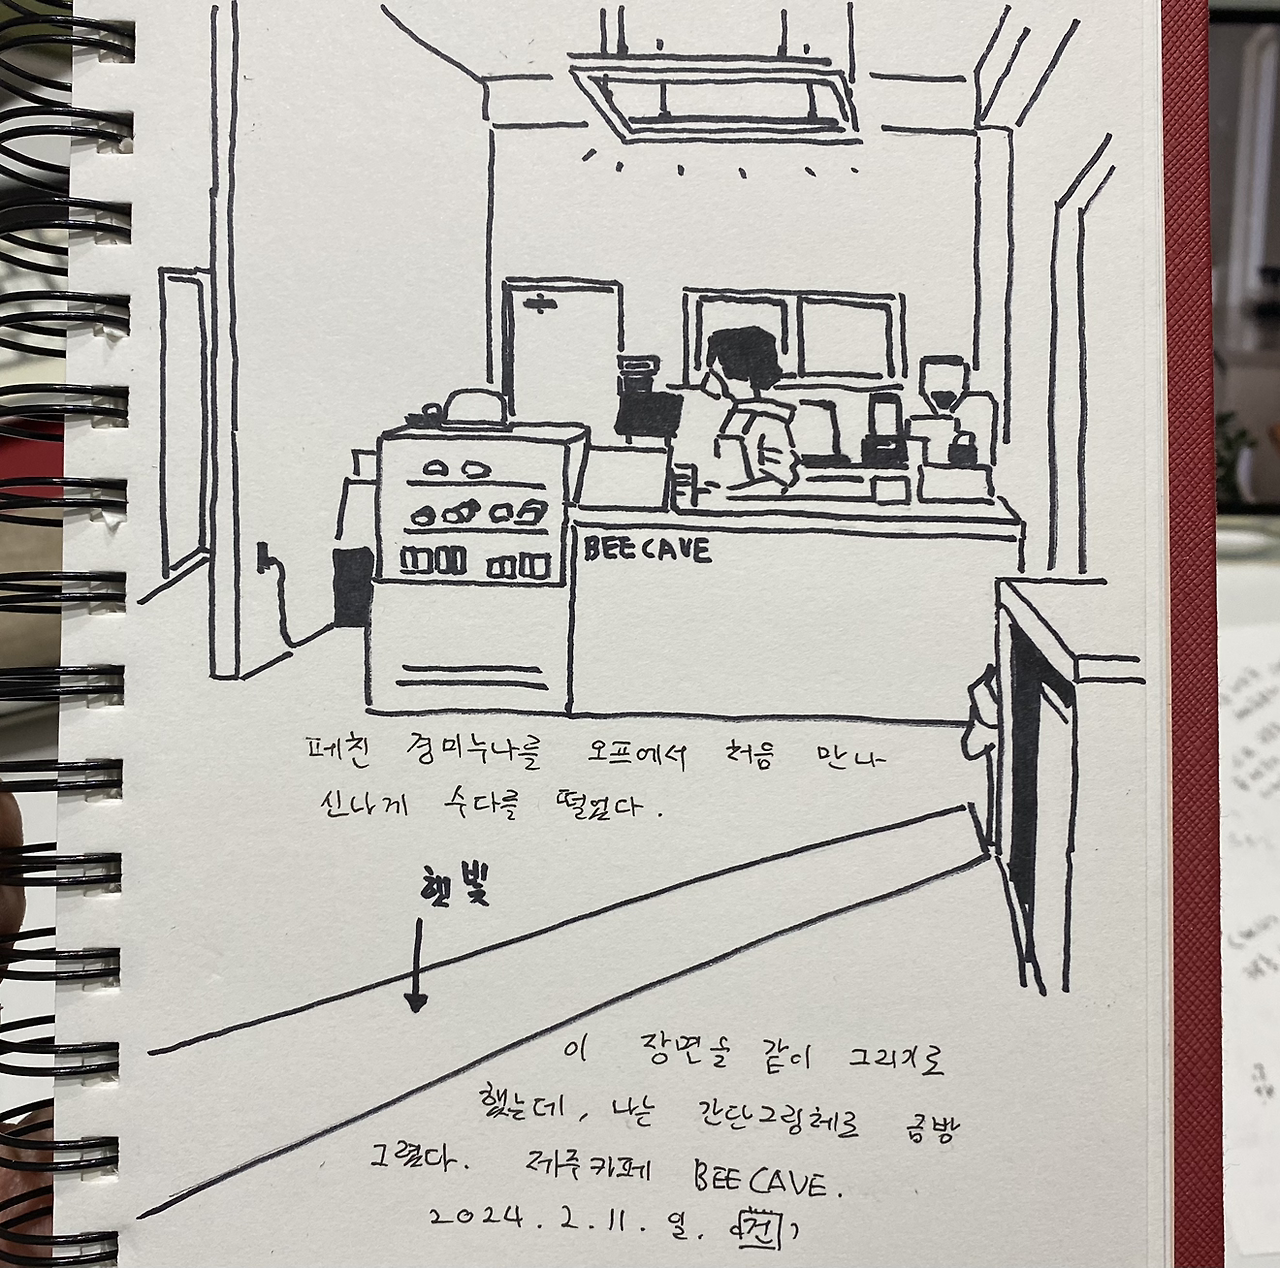 BEE CAVE
페친 경미누나를 오프에서 처음 만나
신나게 수다를 떨었다.
햇빛
이 장면을 같이 그리기로
했는데, 나는 간단그림체로 금방
그렸다. 제주카페 BEE CAVE.
2024.2.11.일. 건